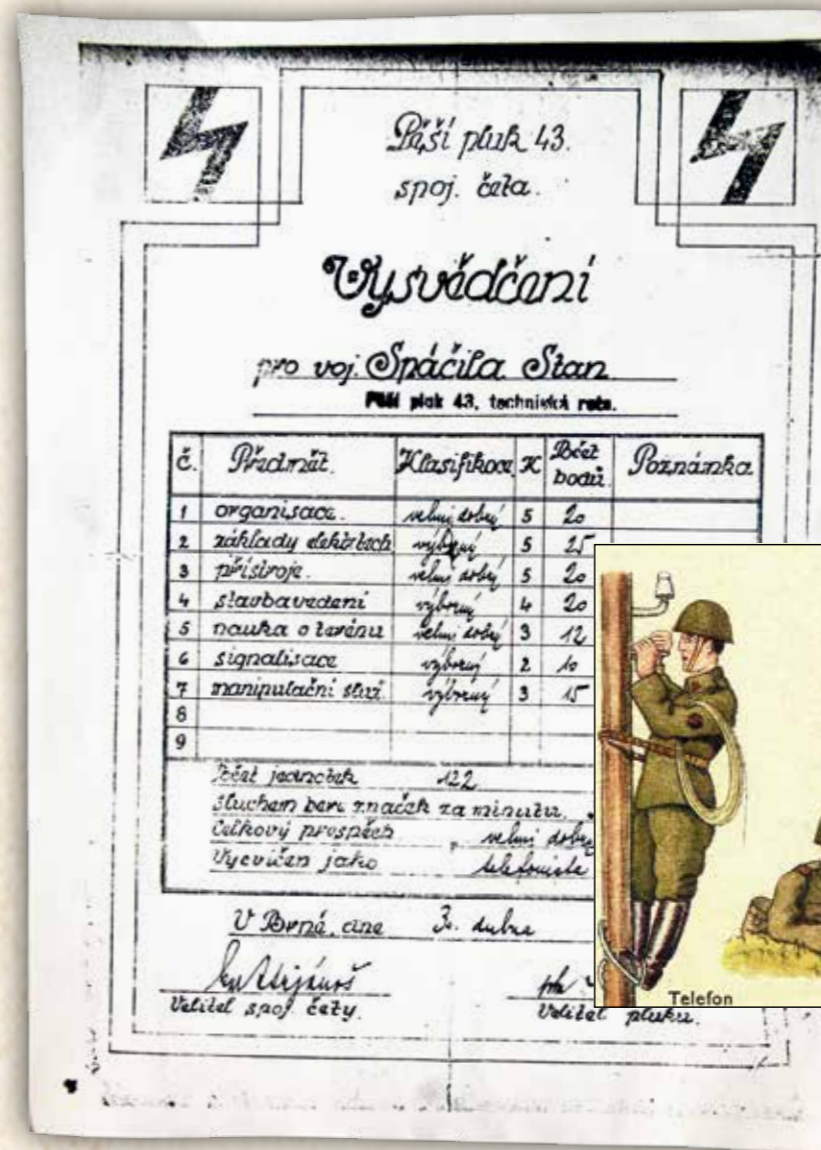 Pěší pluk 43.
spoj. četa.
Vysvědčení
pro voj. Spáčila Stan
Pěší pluk 43, technická rota.
č. Předmět. Klasifikace K Počet bodů. Poznámka
1 organisace. velmi dobrý 5 20
2 základy elektrotech výborný 5 25
3 přístroje. velmi dobrý 5 20
4 stavba vedení výborný 4 20
5 nauka o terénu velmi dobrý 3 12
6 signalisace výborný 2 10
7 manipulační služ. výborný 3 15
8
9
Počet jednotek 122
Sluchem bere značek za minutu,
Celkový prospěch velmi dobrý
Vycvičen jako telefonista
V Brně, dne 30. dubna
Velitel spoj. čety.
Velitel pluku.
Telefon